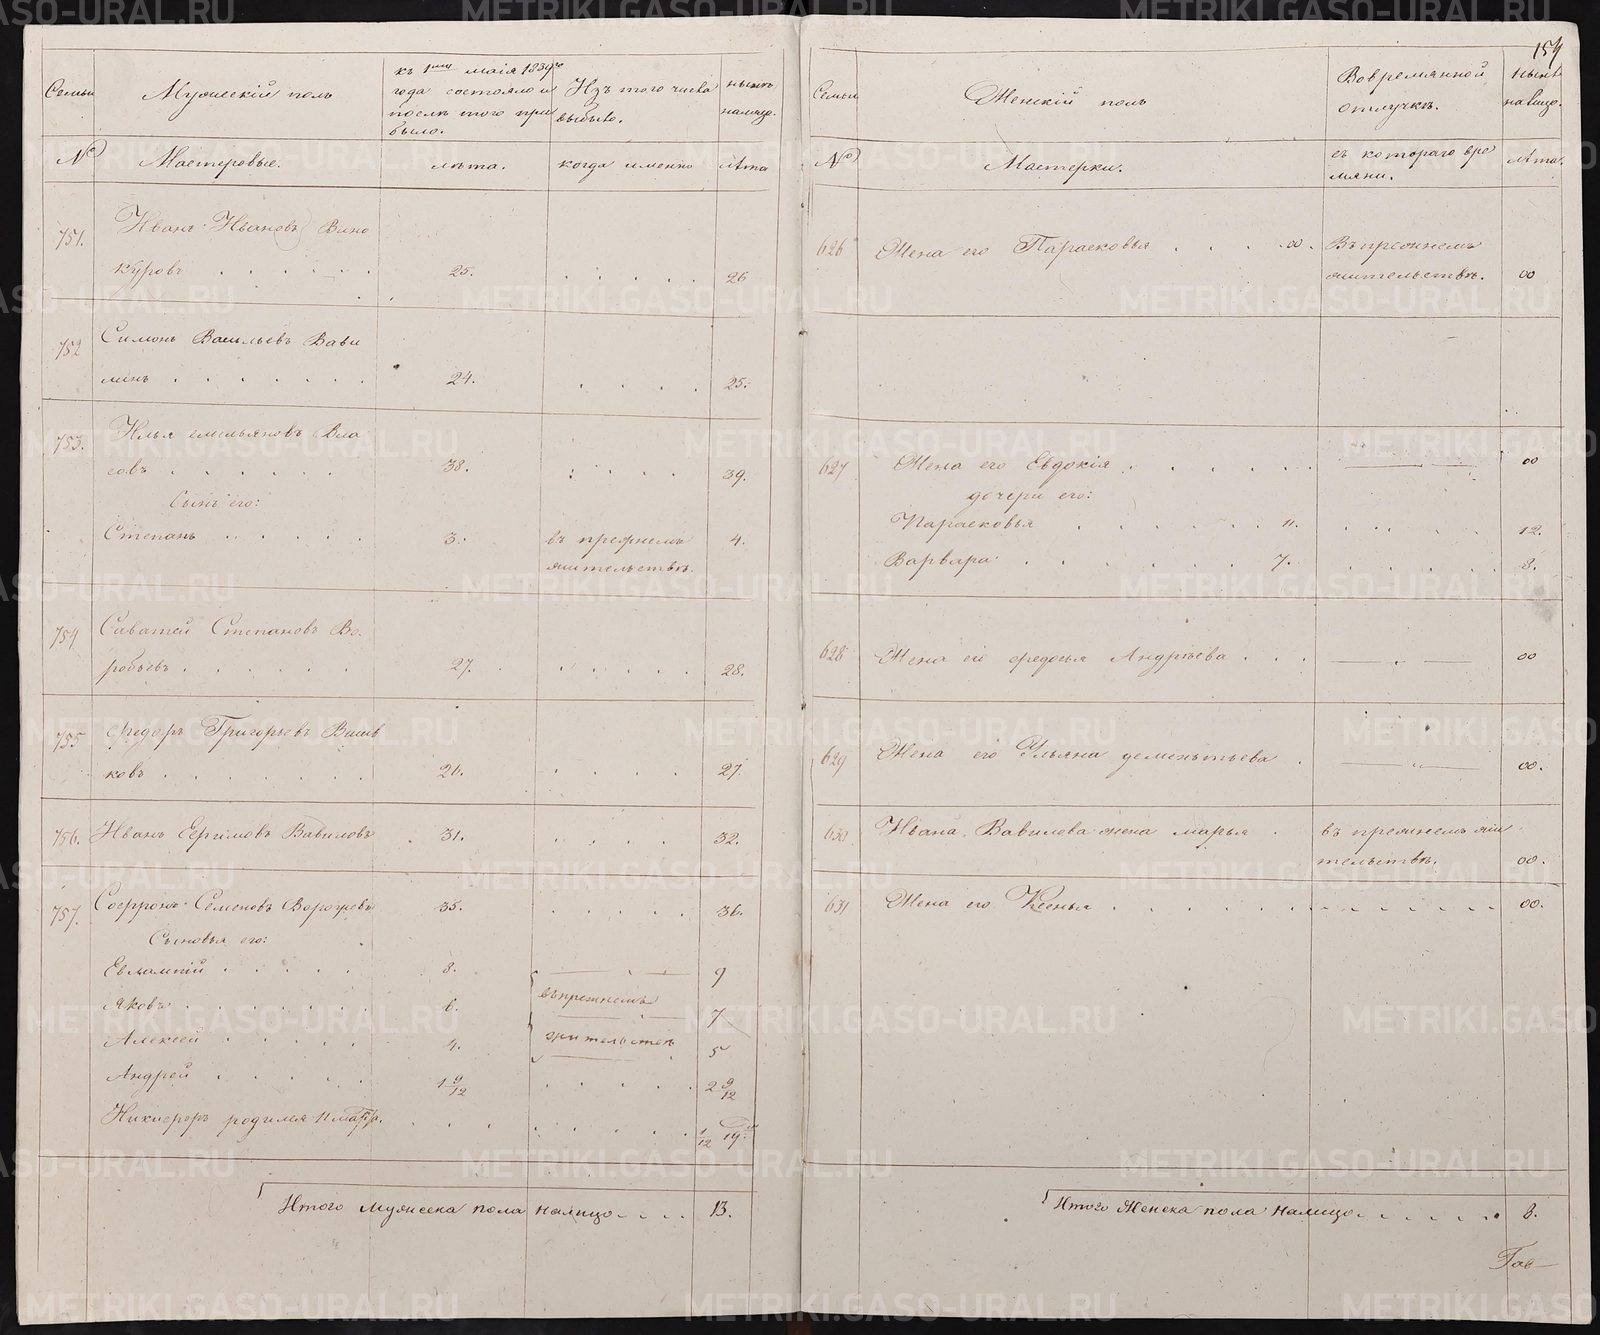 Семьи
Мужескій полъ
къ 1му маія 1839го
года состояло и
послѣ того при
было.
Изъ того числа
выбыло.
нынѣ
налицо.
№
Мастеровые.
лѣта.
когда именно
лѣта
751.
Иванъ Ивановъ Вино
куровъ . . . . . . 25. . . . . . 26
752
Симонъ Васильевъ Вави
линъ . . . . . . . 24. . . . . 25.
753.
Илья емельяновъ Вла
совъ . . . . . . 38. . . . . 39.
Сынъ его:
Степанъ . . . . . 3. въ прежнемъ 4.
жительствѣ.
754
Саватей Степановъ Во
робьевъ . . . . . . 27. . . . . . 28.
755
Федоръ Григорьевъ Вашв
ковъ . . . . . . . 26. . . . . 27.
756. Иванъ Ефимовъ Вавиловъ 31. . . . . 32.
757.
Софронъ Семеновъ 35. . . . . . 36.
Сыновья его:
Евлампій . . . . . 8. 9
Яковъ . . . . . . 6. въ прежнемъ 7
Алексей . . . . . 4. жительствѣ 5
Андрей . . . . . 1 9/12 . . . . . 2 9/12
Никифоръ родился 11 . . . . . . 1/12 19
Итого мужеска пола налицо . . . . 13.
154
Семьи
Женскій полъ
Вовремянной
отлучкѣ.
нынѣ
налицо.
№
Мастерки.
съ котораго вре
мяни.
лѣта.
626 Жена его Парасковья . . . . 00. Въ прежнемъ
жительствѣ. 00
627 Жена его Евдокія . . . . . . 00
дочери его:
Парасковья . . . . . . 11. . . . . 12.
Варвара . . . . . . . 7. . . . . . 8.
628 Жена его федосья Андрѣева . . . 00
629 Жена его Ульяна дементьева . 00.
630 Ивана Вавилова жена марья . въ прежнемъ жи
тельствѣ. 00.
631 Жена его Ксенья . . . . . . . . . . . . 00.
Итого Женска пола налицо . . . . . . 8.
Гав
METRIKI.GASO-URAL.RU